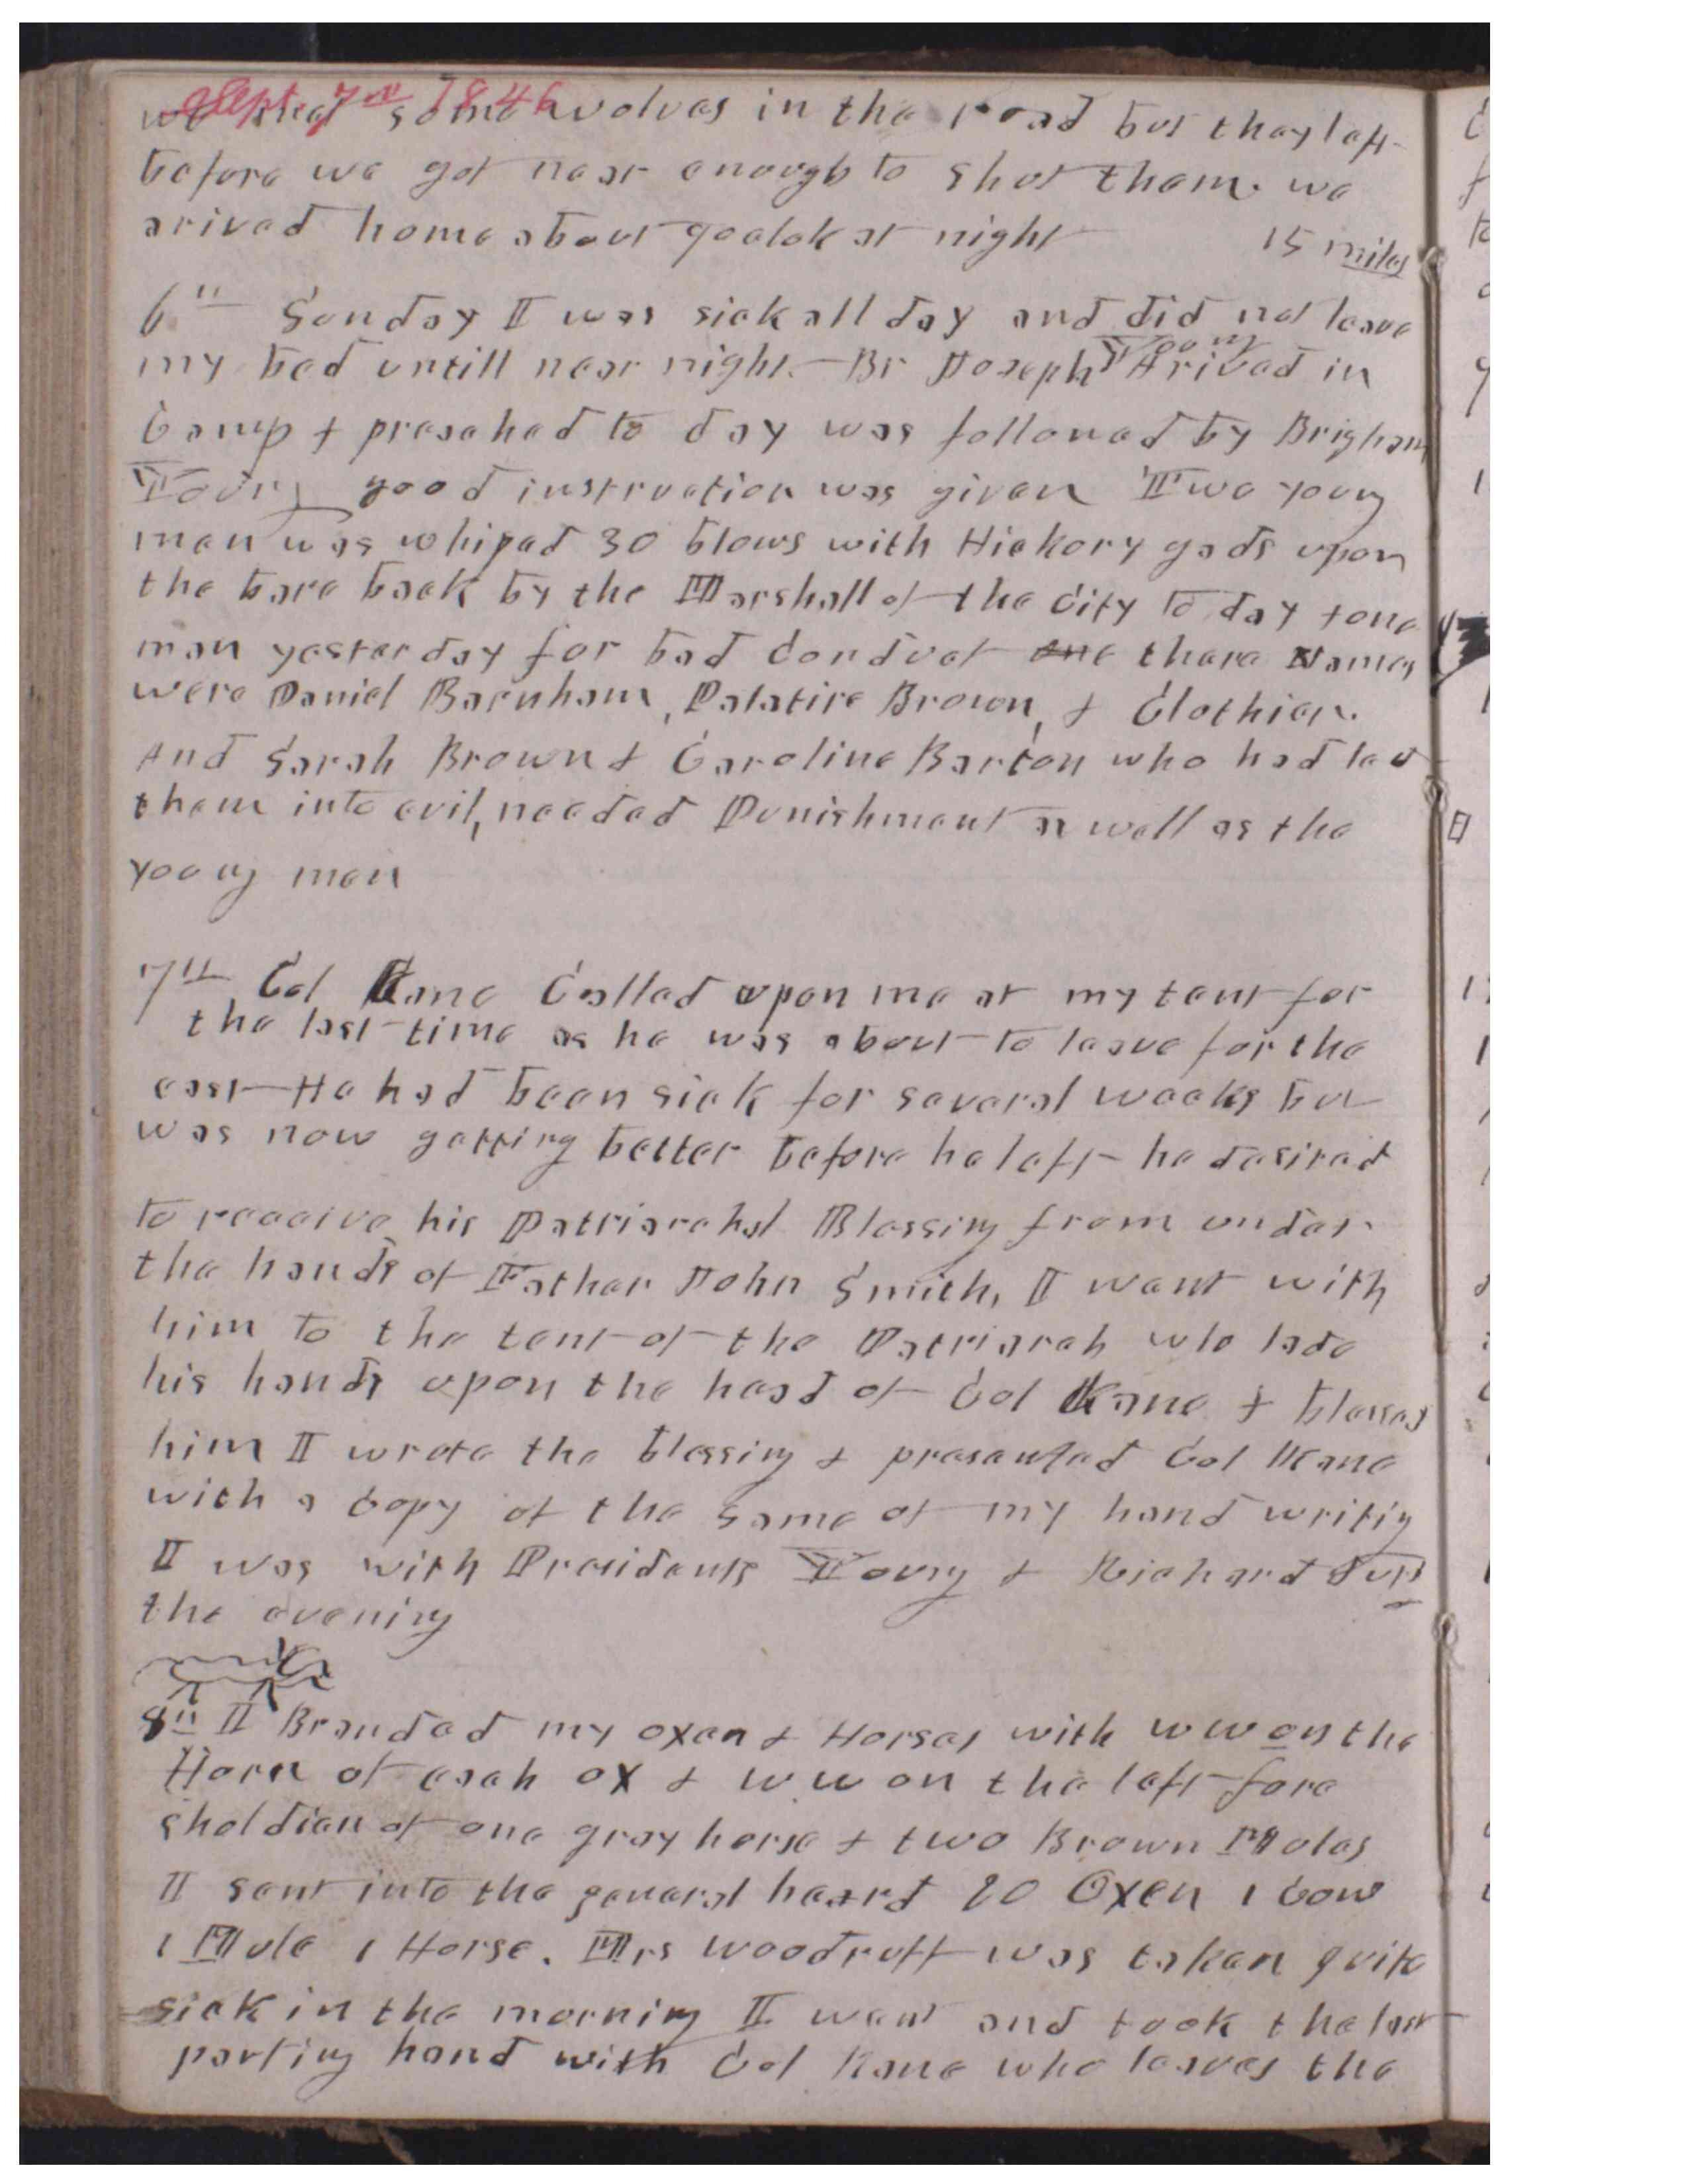 Sept. 7th 1846
we met some wolves in the road but they left
before we got near enough to shot them. we
arived home about 9oclok at night 15 miles
6th Sunday I was sick all day and did not leave
my bed untill near night. - Br Joseph Young Arived in
Camp & preached to day was followed by Brigham
Young good instruction was given Two young
men was whiped 30 blows with Hickory gads upon
the bare back by the Marshall of the City to day & one
man yesterday for bad Conduct there Names
were Daniel Barnham, Palatire Brown, & Clothier.
And Sarah Brown & Caroline Barton who had led
them into evil, needed Punishment as well as the
young men
7th Col Kane Called upon me at my tent for
the last time as he was about to leave for the
east - He had been sick for several weeks but
was now getting better before he left he desired
to receive his Patriarchal Blessing from under
the hands of Father John Smith, I went with
him to the tent of the Patriarch who lade
his hands upon the head of Col Kane & blessed
him I wrote the blessing & presented Col Kane
with a Copy of the same of my hand writing
I was with Presidents Young & Richards
the evening
8th I Branded my oxen & Horses with W W on the
Horn of each ox & W W on the left fore
of one gray horse & two Brown Mules
I sent into the general heard 20 Oxen 1 Cow
1 Mule 1 Horse. Mrs Woodruff was taken quite
sick in the morning I went and took the last
parting hand with Col Kane who leaves the